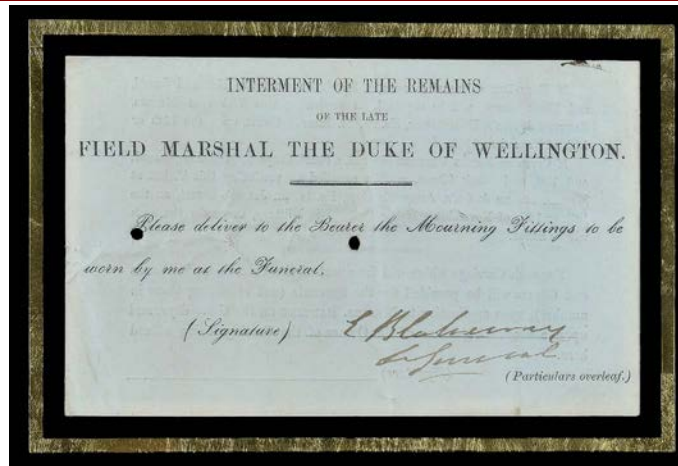 INTERMENT OF THE REMAINS
OF THE LATE
FIELD MARSHAL THE DUKE OF WELLINGTON.
Please deliver to the Bearer the Mourning Fittings to be
worn by me at the Funeral.
(Signature)
(Particulars overleaf.)